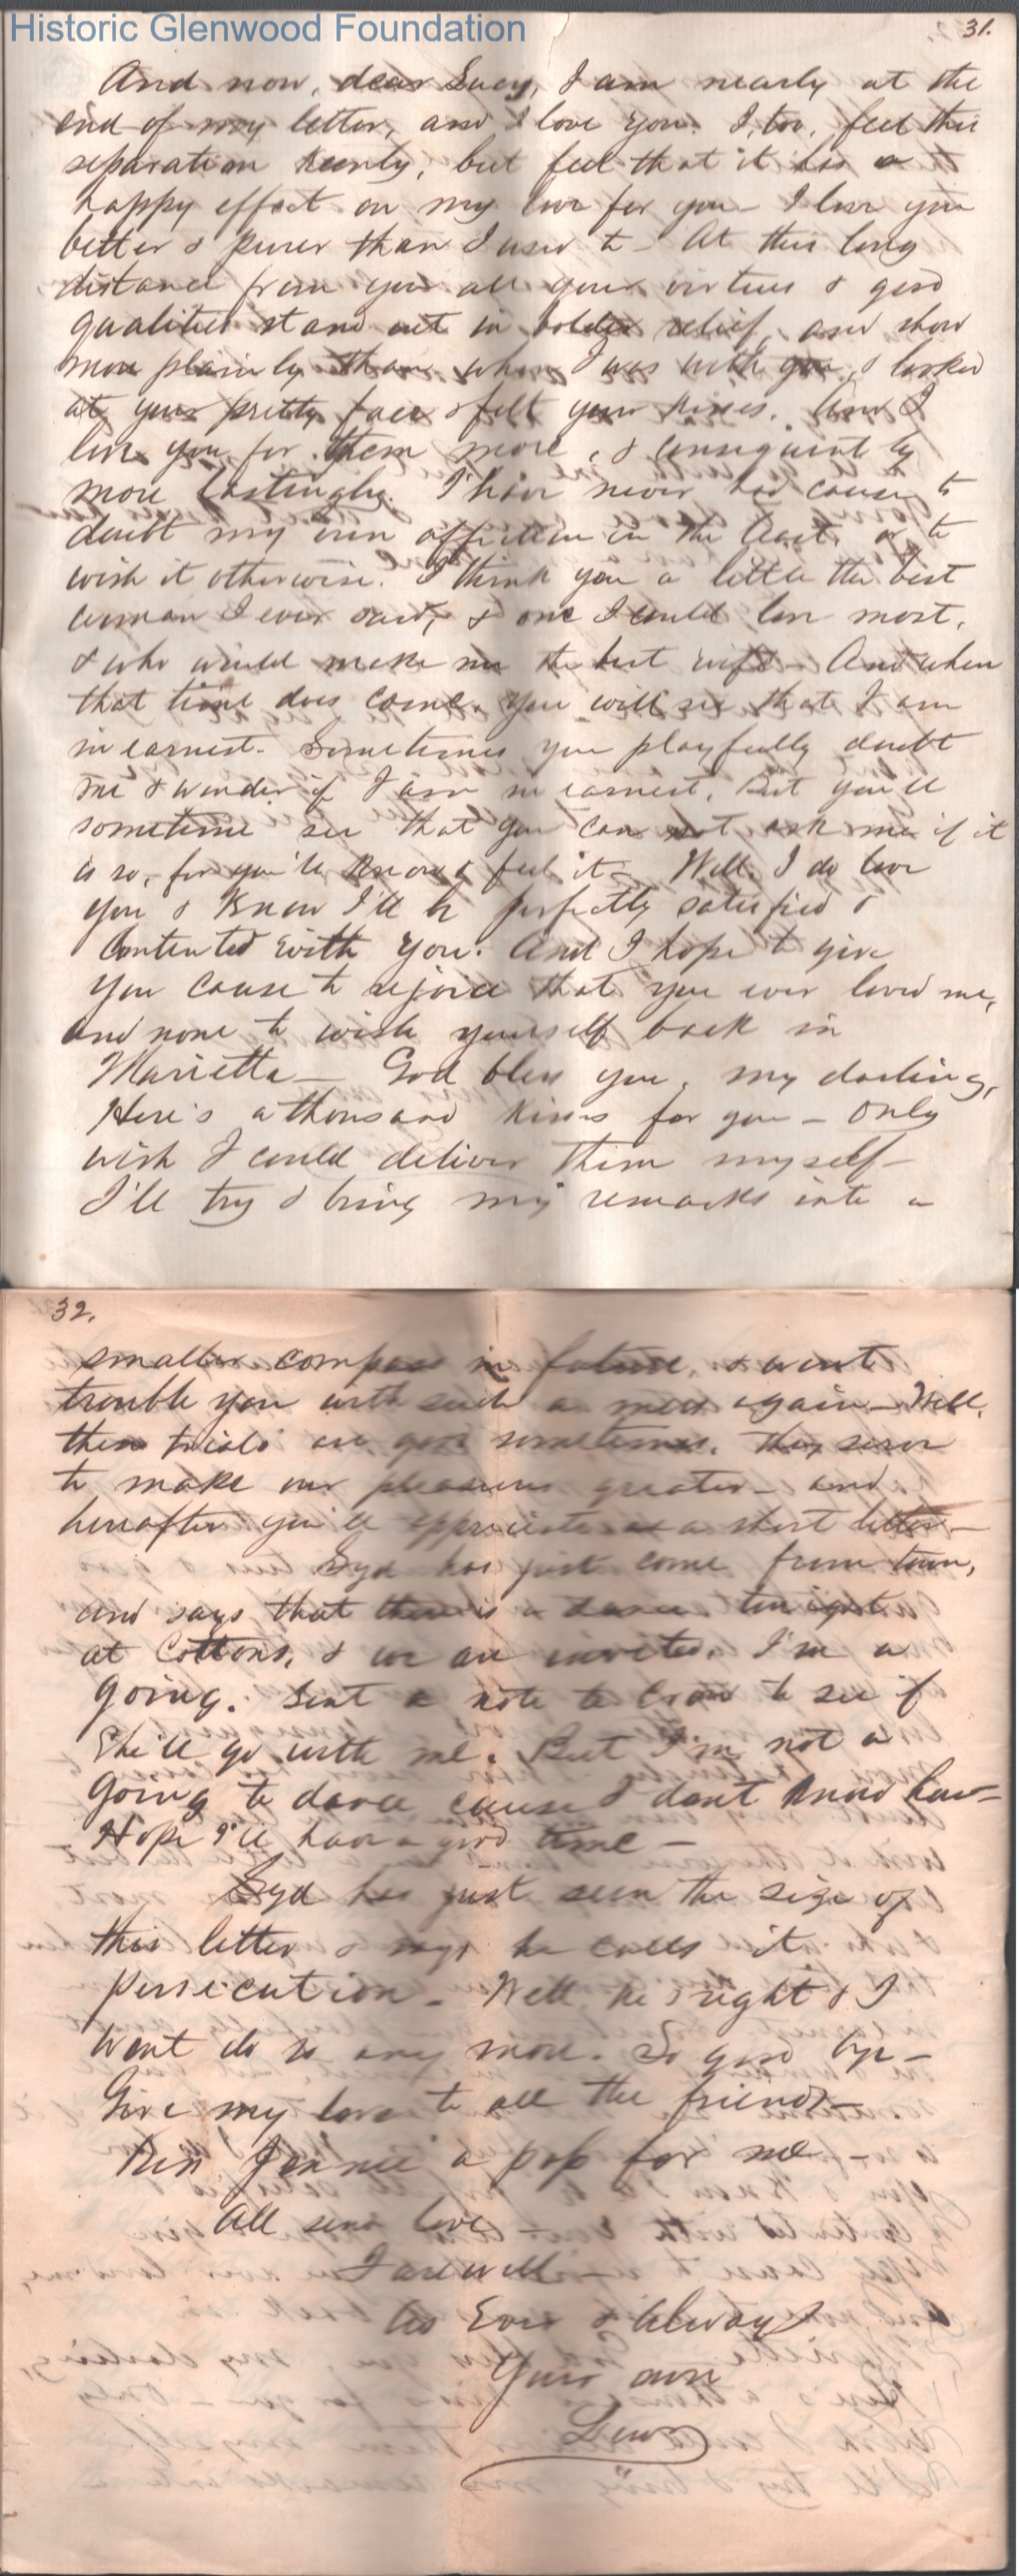 Historic Glenwood Foundation
31.
And now, dear Lucy, I am nearly at the
end of my letter, and I love you. I, too, feel this
separation keenly, but feel that it has a
happy effect on my love for you – I love you
better & purer than I used to – At this long
distance from you all your virtues & good
qualities stand out in bolder relief, and show
more plainly than when I was with you, & looked
at your pretty face & felt your kisses. And I
love you for them more, & consequently
more lastingly. I have never had cause to
doubt my own affection in the least, or to
wish it otherwise. I think you a little the best
woman I ever saw, & one I could love most,
& who would make me the best wife – And when
that time does come, you will see that I am
in earnest. Sometimes you playfully doubt
me & wonder if I am in earnest, But you'll
sometime see that you can not ask me if it
is so, for you'll know & feel it – Well, I do love
you & know I'll be perfectly satisfied &
contented with you. And I hope to give
you cause to rejoice that you ever loved me,
and none to wish yourself back in
Marietta – God bless you, my darling,
Here's a thousand kisses for you – only
wish I could deliver them myself –
I'll try & bring my remarks into a
32.
smaller compass in future, & wont
trouble you with such a mess again – Well,
these trials are good sometimes. They serve
to make our pleasures greater – and
hereafter you'll appreciate a short letter –
Syd has just come from town,
and says that there is a dance tonight
at Cottons, & we are invited. I'm a
going. Sent a note to to see if
she'll go with me. But I'm not a
going to dance cause I dont know how –
Hope I'll have a good time –
Syd has just seen the size of
this letter & says he calls it
persecution – Well he's right & I
wont do so any more. So good bye –
Give my love to all the friends –
Kiss Jennie a pop for me –
All send love
Farewell –
As Ever & Always
Your own
Lewis